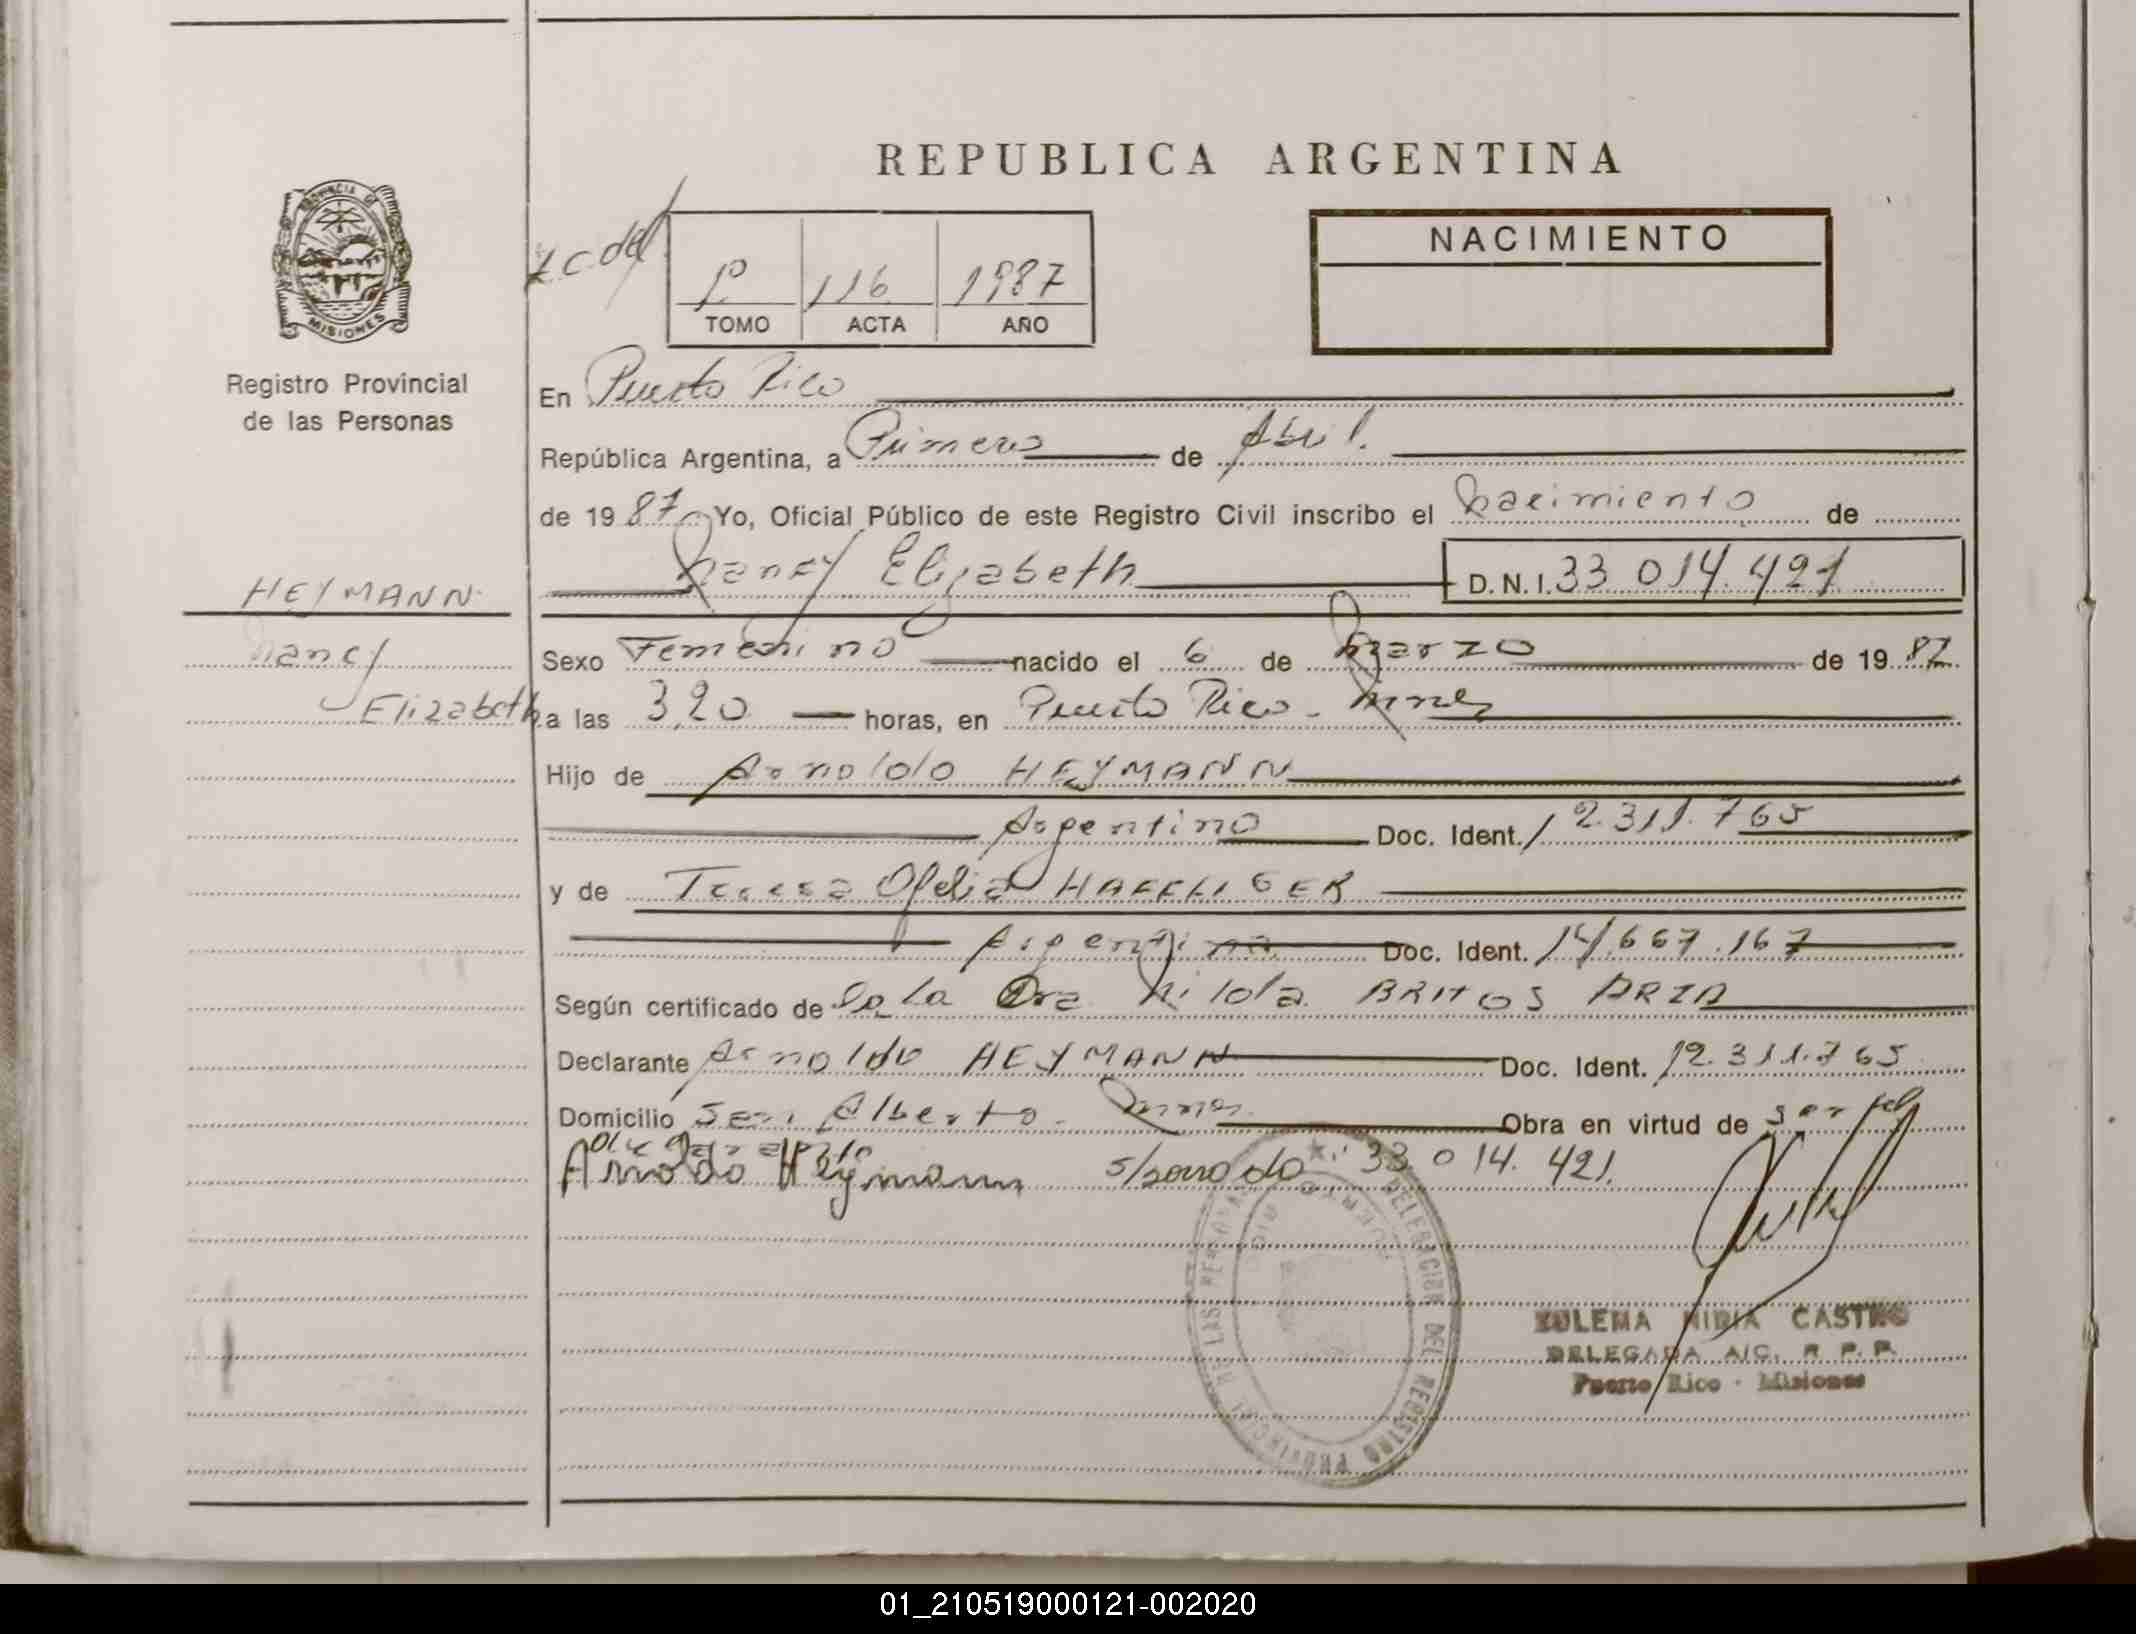 REPUBLICA ARGENTINA
PROVINCIA DE
MISIONES
Registro Provincial
de las Personas
116 1987
TOMO ACTA AÑO
NACIMIENTO
En Puerto Rico
República Argentina, a Primero de Abril.
de 1987 Yo, Oficial Público de este Registro Civil inscribo el Nacimiento de
Nancy Elizabeth D.N.I. 33 014.421
HEYMANN
Nancy
Elizabeth
Sexo Femenino nacido el 6 de Marzo de 1987
a las 3,20 horas, en Puerto Rico - Mnes
Hijo de Arnoldo HEYMANN
Argentino Doc. Ident. 12.311.765
y de Teresa Ofelia HAEFLIGER
Argentina Doc. Ident. 14.667.167
Según certificado de la Dra Nilda BRITOS ARZA
Declarante Arnoldo HEYMANN Doc. Ident. 12.311.765
Domicilio San Alberto - Mnes. Obra en virtud de ser el
declarante
Arnoldo Heymann 33 014.421.
DELEGACION DEL REGISTRO PROVINCIAL DE LAS PERSONAS
PUERTO RICO
ZULEMA NIDIA CASTRO
DELEGADA A/C. R.P.P.
Puerto Rico - Misiones
01_210519000121-002020